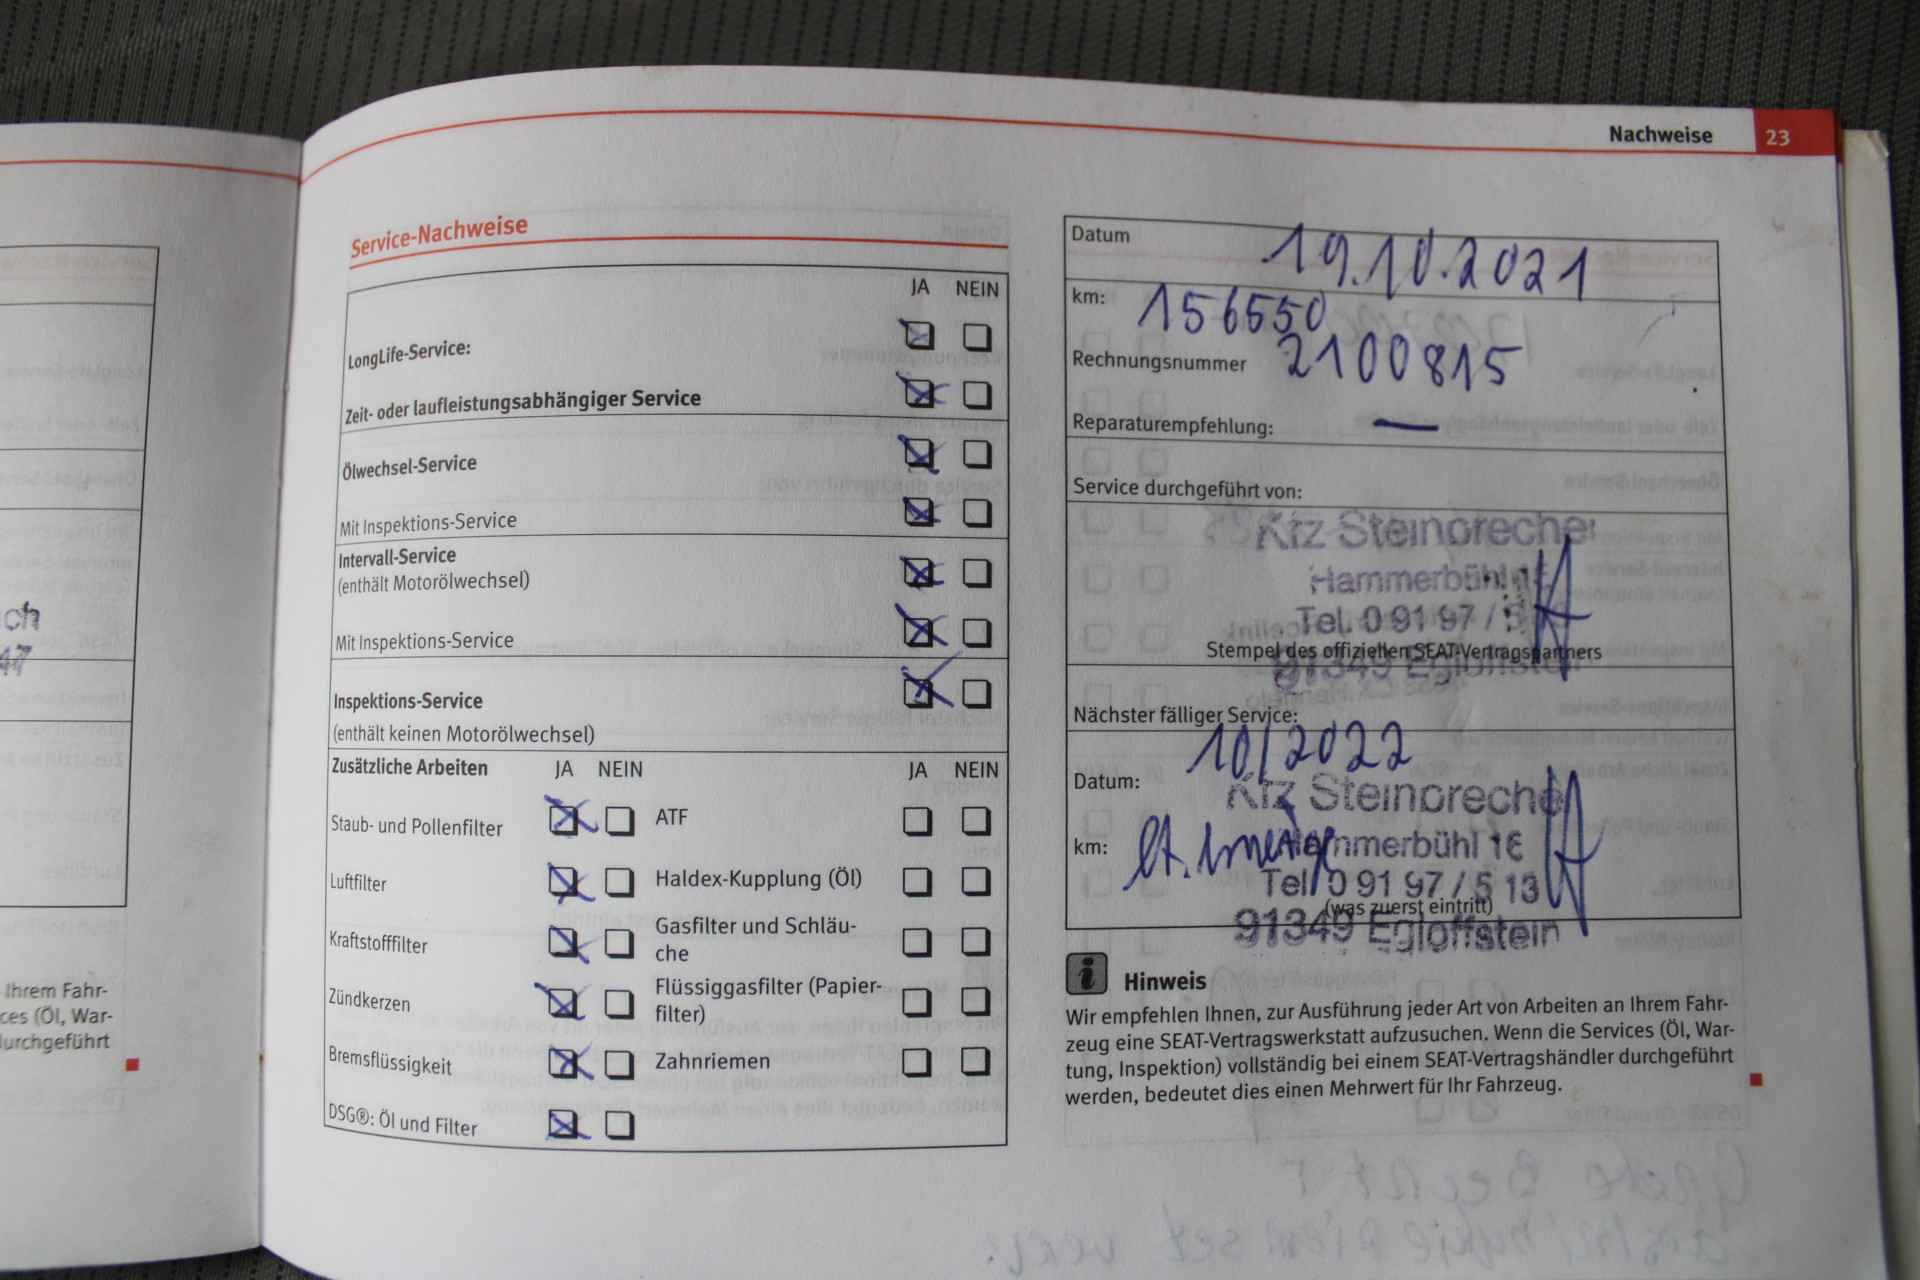 ch
47
Ihrem Fahr-
ces (Öl, War-
durchgeführt
Nachweise 23
Service-Nachweise
JA NEIN
LongLife-Service:
Zeit- oder laufleistungsabhängiger Service
Ölwechsel-Service
Mit Inspektions-Service
Intervall-Service
(enthält Motorölwechsel)
Mit Inspektions-Service
Inspektions-Service
(enthält keinen Motorölwechsel)
Zusätzliche Arbeiten JA NEIN JA NEIN
Staub- und Pollenfilter ATF
Luftfilter Haldex-Kupplung (Öl)
Kraftstofffilter Gasfilter und Schläu-
che
Zündkerzen Flüssiggasfilter (Papier-
filter)
Bremsflüssigkeit Zahnriemen
DSG®: Öl und Filter
Datum 19.10.2021
km: 156550
Rechnungsnummer 2100815
Reparaturempfehlung: —
Service durchgeführt von:
Kfz Steinbrecher
Hammerbühl
Tel. 0 91 97 / 5
Stempel des offiziellen SEAT-Vertragspartners
91349 Egloffstein
Nächster fälliger Service:
10/2022
Datum:
Kfz Steinbrecher
km: lt. Anzeige
Hammerbühl 16
Tel. 0 91 97 / 5 13
(was zuerst eintritt)
91349 Egloffstein
Hinweis
Wir empfehlen Ihnen, zur Ausführung jeder Art von Arbeiten an Ihrem Fahr-
zeug eine SEAT-Vertragswerkstatt aufzusuchen. Wenn die Services (Öl, War-
tung, Inspektion) vollständig bei einem SEAT-Vertragshändler durchgeführt
werden, bedeutet dies einen Mehrwert für Ihr Fahrzeug.